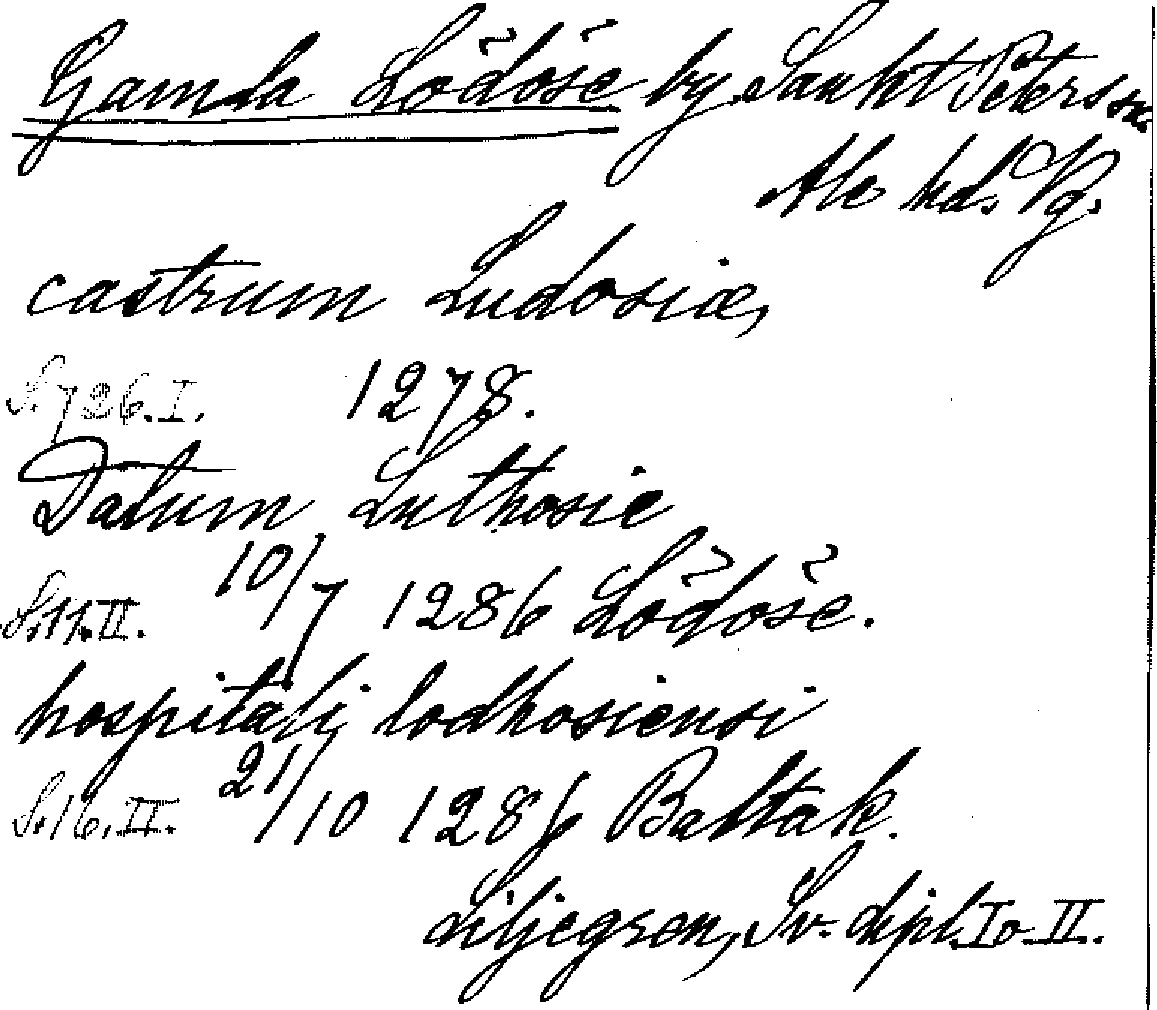 Gamla Lödöse by Sankt Peters sn.
Ale hd. Vg.
castrum Ludosiæ,
S. 726. I. 1278.
Datum Luthosie
S. 11. II. 10/7 1286 Lödöse.
hospitalj lodhosiensi
S. 16. II. 21/10 1286 Baltak.
Liljegren, Sv. dipl. I o. II.